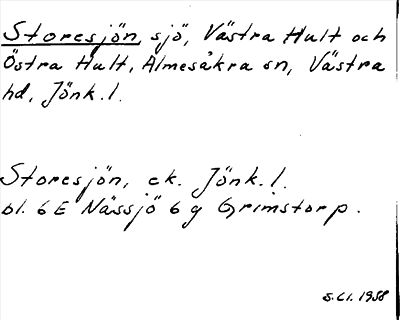 Storesjön, sjö, Västra Hult och
Östra Hult, Almesåkra sn, Västra
hd, Jönk. l.
Storesjön, ek. Jönk. l.
bl. 6 E Nässjö 6 g Grimstorp.
1958